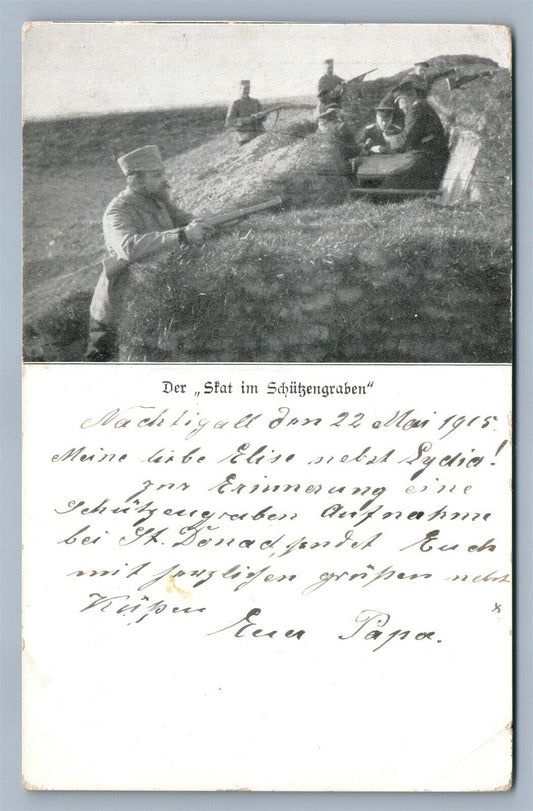 Der „Skat im Schützengraben"
Nachtigall den 22 Mai 1915.
Meine liebe Elise nebst Lydia!
zur Erinnerung eine
Schützengraben Aufnahme
bei St. Donad, sendet Euch
mit herzlichen grüßen nebst
Küßen
Euer Papa.